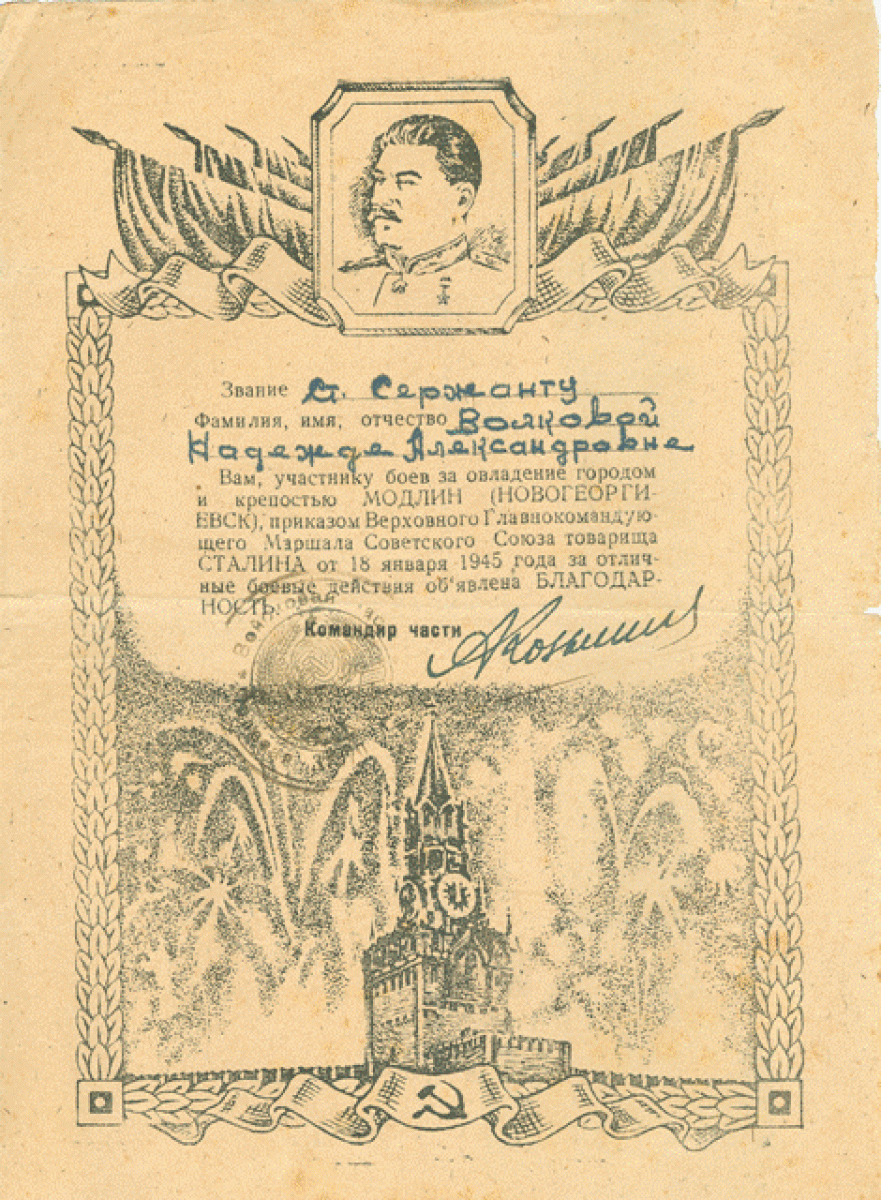 Звание Ст. Сержанту
Фамилия, имя, отчество Волковой
Надежде Александровне
Вам, участнику боев за овладение городом
и крепостью МОДЛИН (НОВОГЕОРГИ-
ЕВСК), приказом Верховного Главнокомандую-
щего Маршала Советского Союза товарища
СТАЛИНА от 18 января 1945 года за отлич-
ные боевые действия об'явлена БЛАГОДАР-
НОСТЬ.
Командир части